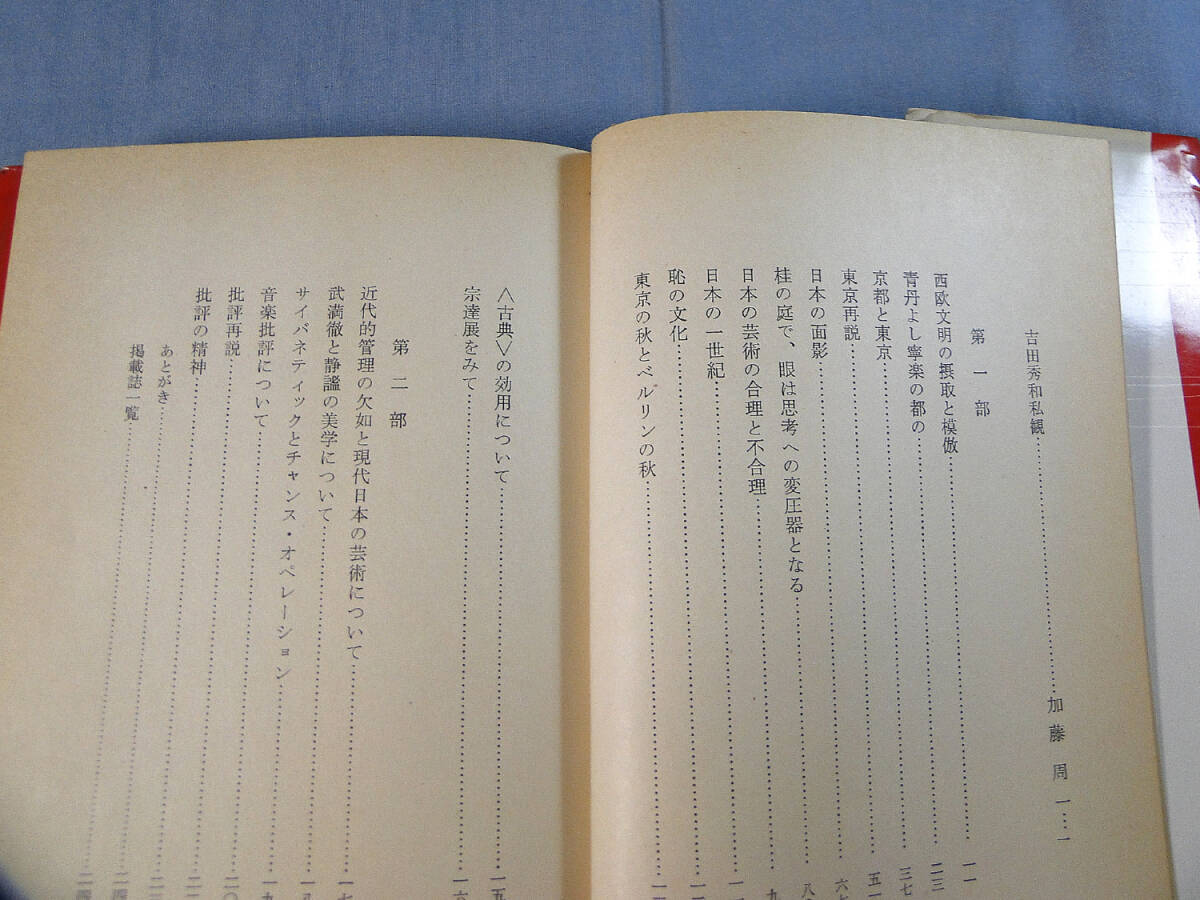 吉田秀和私観………加藤周一…一
第一部
西欧文明の摂取と模倣………一一
青丹よし寧楽の都の………二三
京都と東京………三七
東京再説………五一
日本の面影………六
桂の庭で、眼は思考への変圧器となる………八
日本の芸術の合理と不合理………九
日本の一世紀………一
恥の文化………一
東京の秋とベルリンの秋………一
〈古典〉の効用について………一五
宗達展をみて………一六
第二部
近代的管理の欠如と現代日本の芸術について………一七
武満徹と静謐の美学について………一八
サイバネティックとチャンス・オペレーション………一九
音楽批評について………一九
批評再説………二〇
批評の精神………二
あとがき………二
掲載誌一覧………二四